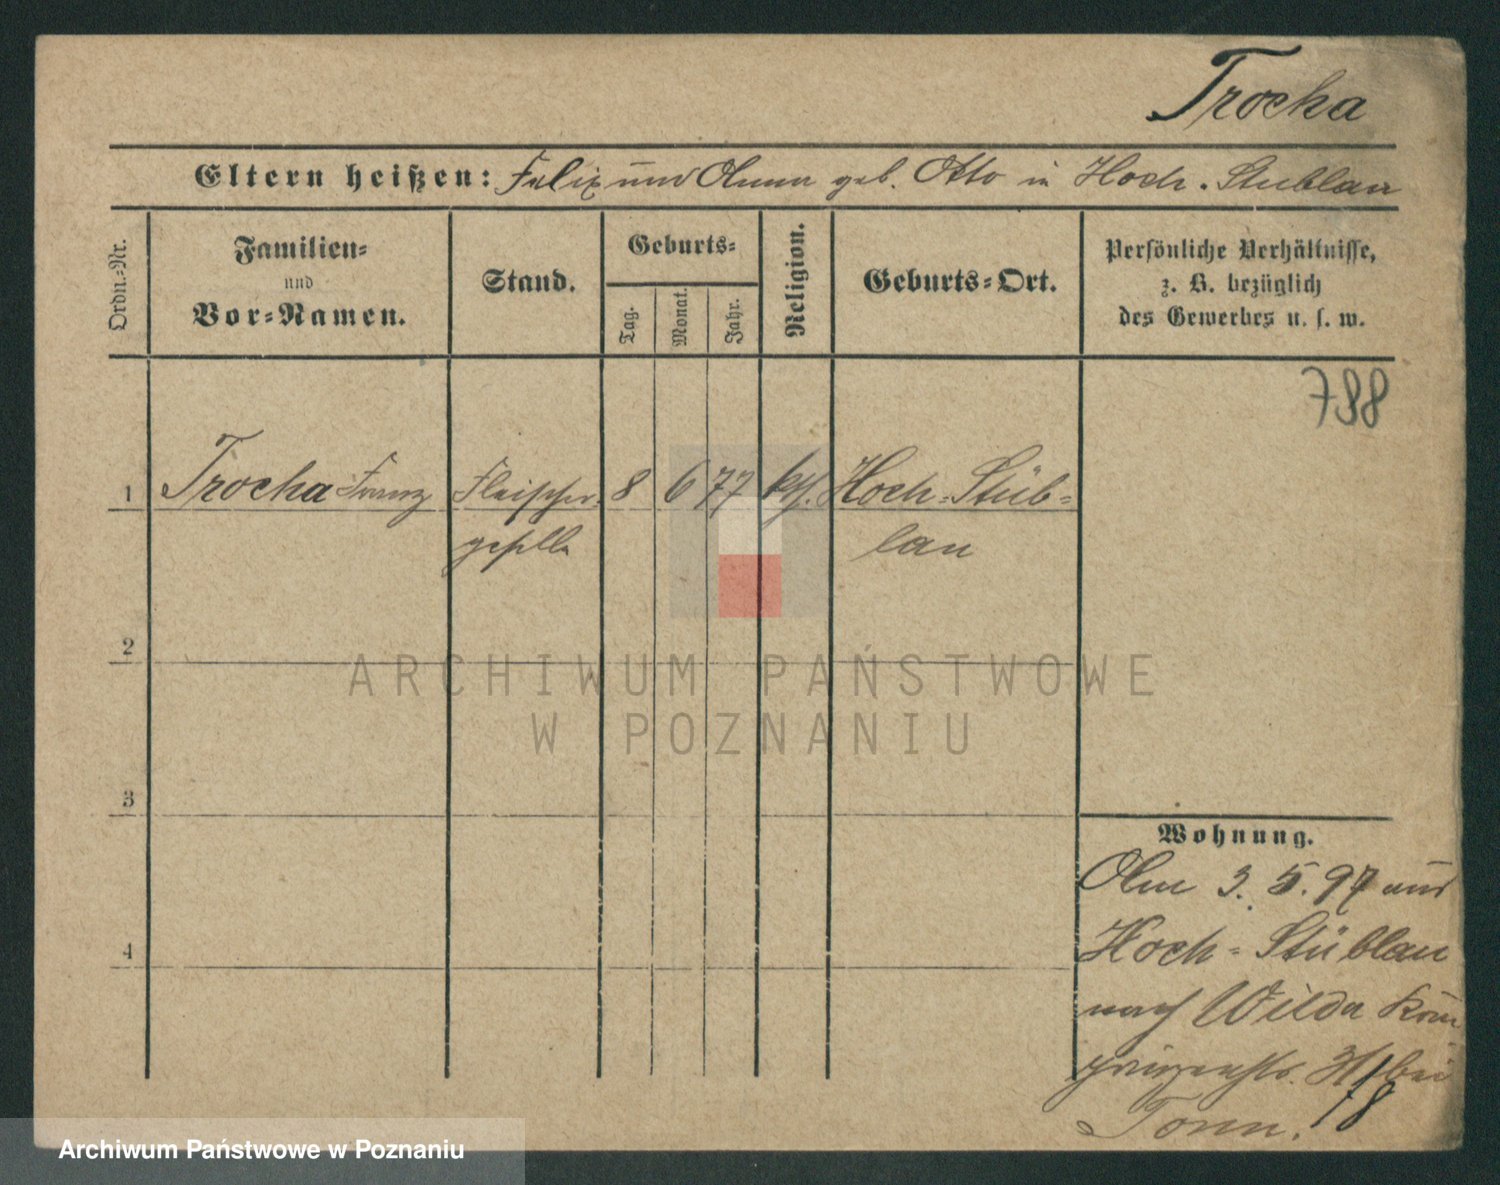 Trocka
Eltern heißen: Felix und Anna geb. Otto in Hoch-Stublau
Ordn.-Nr.
Familien-
und
Vor-Namen.
Stand.
Geburts-
Tag.
Monat.
Jahr.
Religion.
Geburts-Ort.
Persönliche Verhältnisse,
z. B. bezüglich
des Gewerbes u. s. w.
788
1 Trocha Franz Fleischer- 8 6 77 kth. Hoch-Stüb-
geselle lau
2
ARCHIWUM PAŃSTWOWE
W POZNANIU
3
Wohnung.
Am 3. 5. 97 aus
Hoch-Stüblau
4
nach Wilda Kron
prinzenstr. bei
18
Archiwum Państwowe w Poznaniu